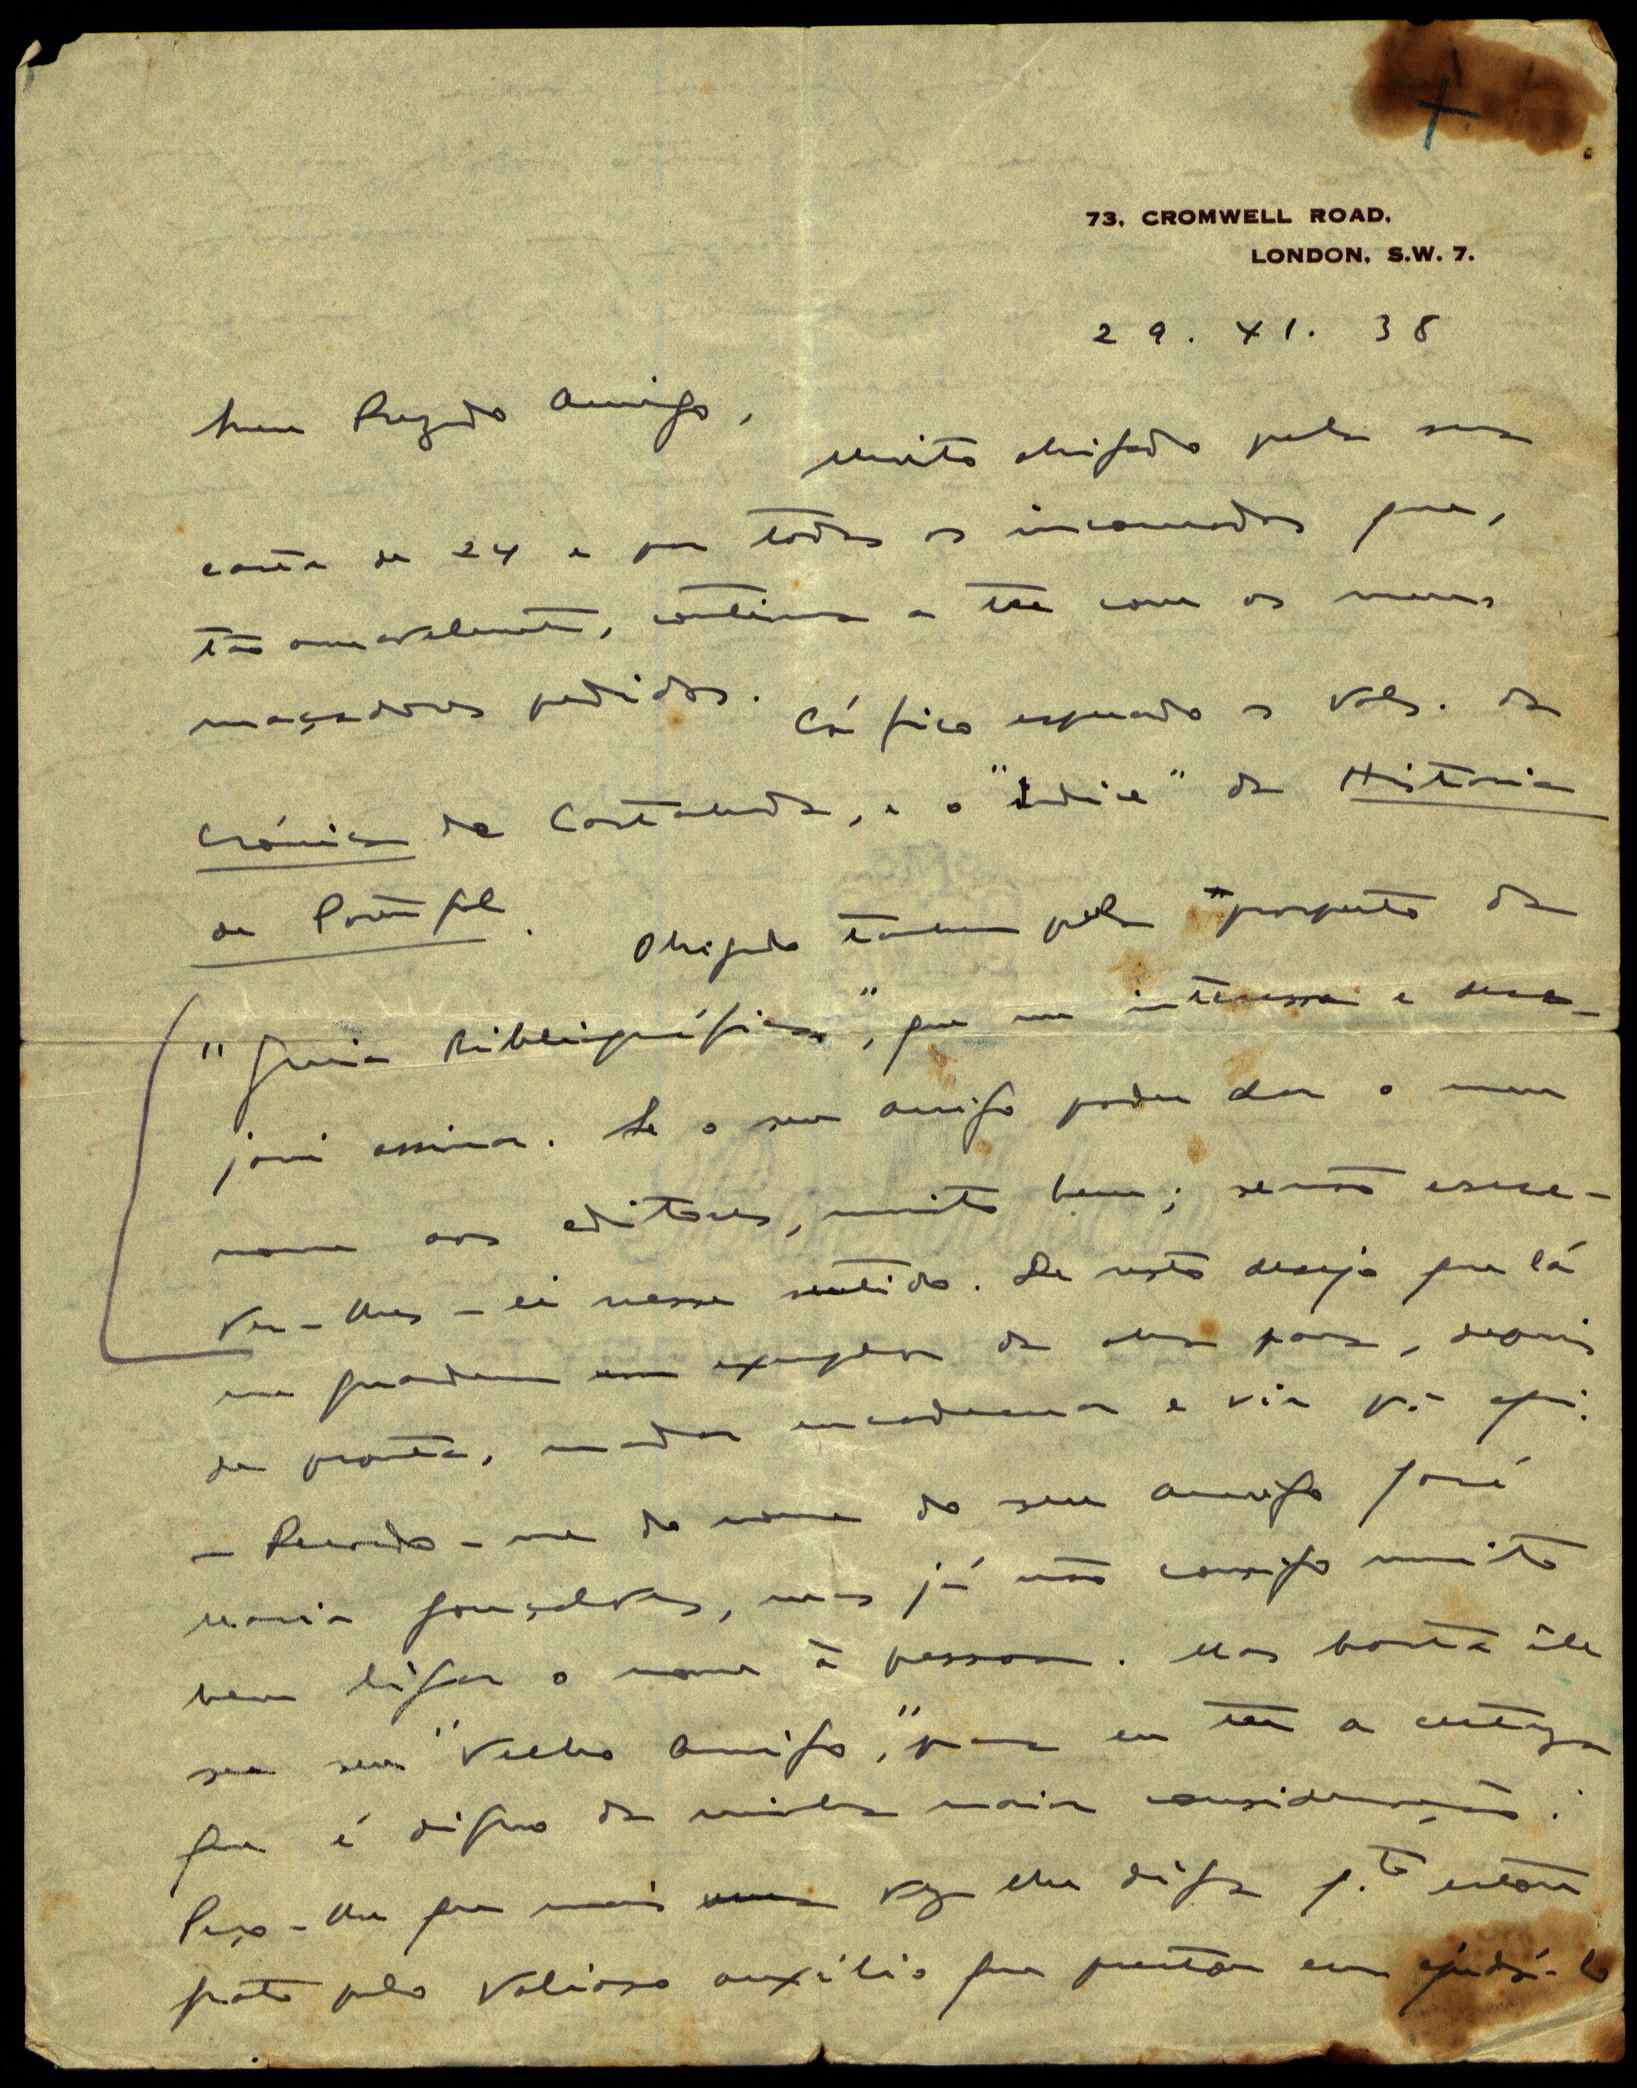 73, CROMWELL ROAD,
LONDON, S.W. 7.
29. XI. 38
Meu Prezado Amigo,
Muito obrigado pela sua
carta de 24 e por todos os incomodos que,
tão amavelmente, continua a ter com os meus
maçadores pedidos. Cá fico esperando os vols. da
Crónica de Castanheda, e o "Indice" da Historia
de Portugal. Obrigado tambem pelo prospecto da
"Guia Bibliográfica", que me interessa e dese-
jari assinar. Se o seu amigo poder dar o meu
nome aos editores, muito bem; senão escre-
ver-lhes-ei nesse sentido. De resto desejo que lá
me guardem um exemplar da obra para, depois
de pronta, mandar encadernar e vir pª aqui.
- Recordo-me do nome do seu amigo José
Maria Gonçalves, mas já não consigo muito
bem ligar o nome à pessoa. Mas basta êle
ser seu "velho amigo", para eu ter a certeza
que é digno da minha maior consideração.
Peço-lhe que mais uma vez lhe diga q.to estou
grato pelo valioso auxílio que prestou em ajudá-lo